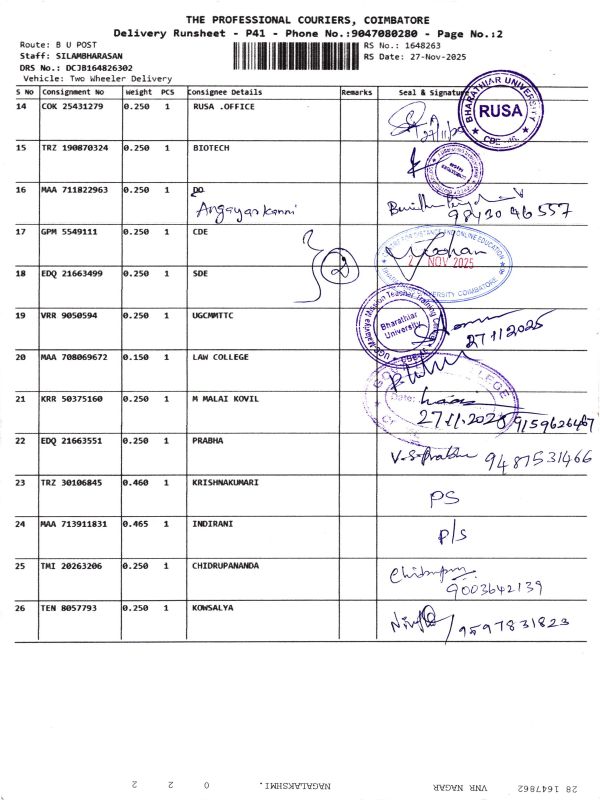 THE PROFESSIONAL COURIERS, COIMBATORE
Delivery Runsheet - P41 - Phone No.:9047080280 - Page No.:2
Route: B U POST RS No.: 1648263
Staff: SILAMBHARASAN RS Date: 27-Nov-2025
DRS No.: DCJB164826302
Vehicle: Two Wheeler Delivery
S No Consignment No Weight PCS Consignee Details Remarks Seal & Signature
14 COK 25431279 0.250 1 RUSA .OFFICE
BHARATHIAR UNIVERSITY RUSA CBE - 46
27/11/25
15 TRZ 190870324 0.250 1 BIOTECH
16 MAA 711822963 0.250 1 DO
Angayarkanni 9843046557
17 GPM 5549111 0.250 1 CDE
CENTRE FOR DISTANCE AND ONLINE EDUCATION
2 NOV 2025
UNIVERSITY COIMBATORE
2
18 EDQ 21663499 0.250 1 SDE
19 VRR 9050594 0.250 1 UGCMMTTC
UGC Malaviya Mission Teacher Training
Bharathiar University
27/11/2025
20 MAA 708069672 0.150 1 LAW COLLEGE
21 KRR 50375160 0.250 1 M MALAI KOVIL
Date:
27.11.2025 9159626467
22 EDQ 21663551 0.250 1 PRABHA
V.S.Prabhu 9487531466
23 TRZ 30106845 0.460 1 KRISHNAKUMARI
PS
24 MAA 713911831 0.465 1 INDIRANI
P/S
25 TMI 20263206 0.250 1 CHIDRUPANANDA
9003642139
26 TEN 8057793 0.250 1 KOWSALYA
9597831823
28 1647862 VNR NAGAR NAGALAKSHMI. 0 2 2